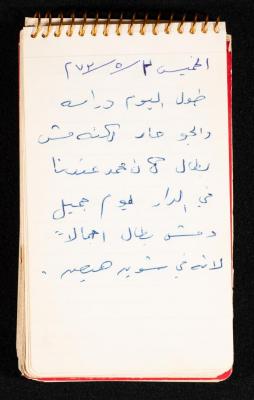 الخميس ٣/٥/٧٣
طول اليوم دراسه
والجو حار لكنه مش
بطال كان محمد عندنا
في الدار يوم جميل
ومش بطال اجمالاً
لانه في شوية هيصه .